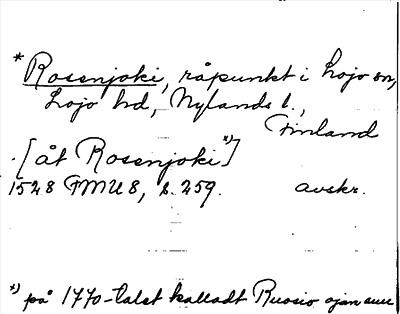 * Rosenjoki, råpunkt i Lojo sn,
Lojo hd, Nylands l.,
Finland
[åt Rosenjoki *)]
1528 FMU 8, s. 259. avskr.
*) på 1770-talet kalladt Ruosio ojan suu